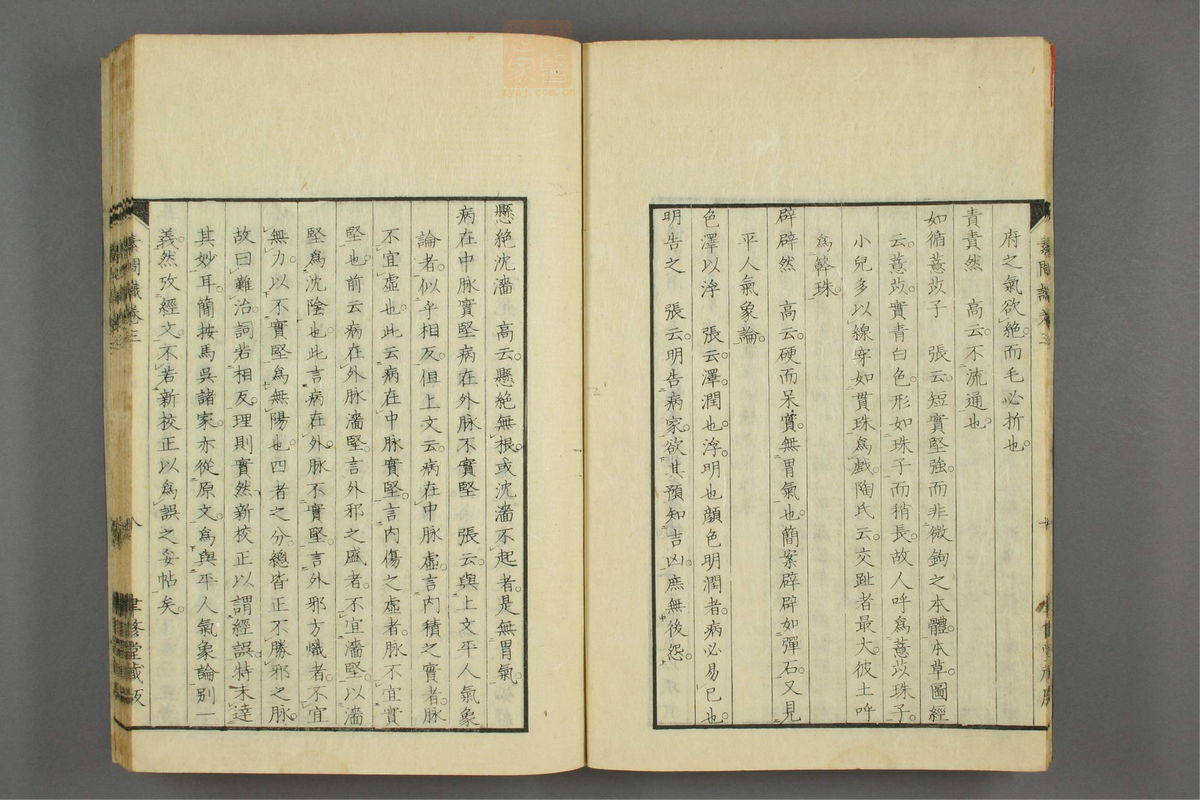 府之氣欲絶而毛必折也
責責然　高云不流通也
如循薏苡子　張云短實堅強而非微鉤之本體本草圖經
云薏苡實青白色形如珠子而稍長故人呼為薏苡珠子
小兒多以線穿如貫珠為戲陶氏云交趾者最大彼土呼
為簳珠
辟辟然　高云硬而呆實無胃氣也簡案辟辟如彈石又見
平人氣象論
色澤以浮　張云澤潤也浮明也顔色明潤者病必易已也
明告之　張云明告病家欲其預知吉凶庶無後怨
懸絶沈濇　高云懸絶無根或沈濇不起者是無胃氣
病在中脉實堅病在外脉不實堅　張云與上文平人氣象
論者似乎相反但上文云病在中脉虛言内積之實者脉
不宜虛也此云病在中脉實堅言内傷之虛者脉不宜實
堅也前云病在外脉濇堅言外邪之盛者不宜濇堅以濇
堅為沈陰也此言病在外脉不實堅言外邪方熾者不宜
無力以不實堅為無陽也四者之分總皆正不勝邪之脉
故曰難治詞若相反理則實然新校正以謂經誤特未達
其妙耳簡按馬吳諸家亦從原文為與平人氣象論別一
義然攷經文不若新校正以為誤之妥帖矣
素問識卷三
八
聿修堂藏版